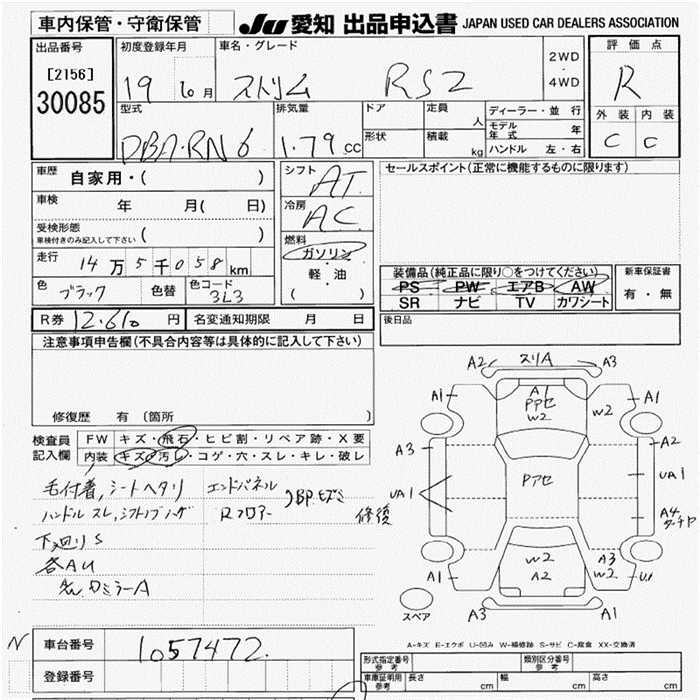 車内保管・守衛保管
JU 愛知 出品申込書 JAPAN USED CAR DEALERS ASSOCIATION
出品番号
[2156]
30085
初度登録年月
19 10月
車名・グレード
ストリム RSZ
2WD
・
4WD
評価点
R
外装 内装
C C
型式
DBA-RN6
排気量
1.79 cc
ドア
形状
定員
人
積載
kg
ディーラー・並行
モデル年式 年
ハンドル 左・右
車歴
自家用・( )
車検
年 月( 日)
受検形態
車検付きのみ記入して下さい ( )
走行
14万5千058km
色
ブラック
色替
色コード
3L3
シフト
AT
冷房
AC
燃料
ガソリン
・
軽・油
( )
セールスポイント(正常に機能するものに限ります)
装備品(純正品に限り○をつけてください)
PS PW エアB AW
SR ナビ TV カワシート
新車保証書
有・無
R券 12.610 円
名変通知期限 月 日
後日品
注意事項申告欄(不具合内容等は具体的に記入して下さい)
修復歴 有 〔箇所 〕
検査員
記入欄
FW キズ・飛石・ヒビ割・リペア跡・X要
内装 キズ・汚レ・コゲ・穴・スレ・キレ・破レ
毛付着, シートヘタリ
エンドパネル
ハンドルスレ,
Rフロアー
修復
下廻りS
各AU
A2 スリA A3
A1 A1 PPセ W2 W2 A1
A3 A2
UA1 Pアセ UA1
A4
タッチヤ
W2 A3
A1 A2 W2 U1
スペア
A3 A1
A-キズ E-エクボ U-凹み W-補修跡 S-サビ C-腐食 XX-交換済
N
車台番号
1057472
登録番号
形式指定番号
参考
類別区分番号
参考
車庫証明用
参考
長さ cm
幅 cm
高さ cm